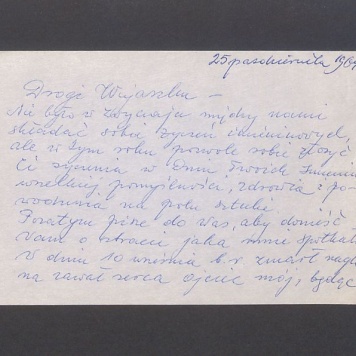 25 października 196
Drogi Wujaszku –
Nie było w zwyczaju między nami
składać sobie życzeń imieninowych,
ale w tym roku pozwolę sobie złożyć
Ci życzenia w Dniu Twoich Imienin
wszelkiej pomyślności, zdrowia i po-
wodzenia na polu sztuki.
Pozatym piszę do was, aby donieść
Vam o stracie jaka mnie spotkała
W dniu 10 września b.r. zmarł nagle
na zawał serca ojciec mój, będąc